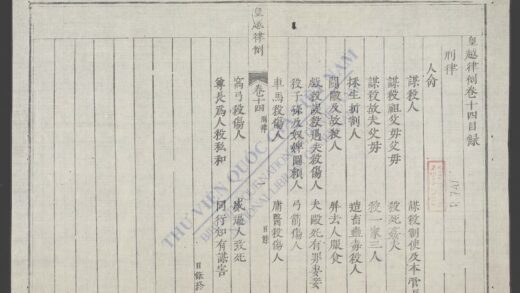 皇越律例卷十四目錄
刑律
人命
謀殺人 謀殺制使及本管
謀殺祖父母父母 殺死姦夫
謀殺故夫父母 殺一家三人
採生折割人 造畜蠱毒殺人
鬬毆及故殺人 屏去人服食
戲殺誤殺過失殺傷人 夫毆死有罪妻妾
殺子孫及奴婢圖賴人 弓箭傷人
車馬殺傷人 庸醫殺傷人
皇越律例 卷十四 刑律 目錄
窩弓殺傷人 威逼人致死
尊長爲人殺私和 同行知有謀害
目錄終
THƯ VIỆN QUỐC GIA VIỆT NAM